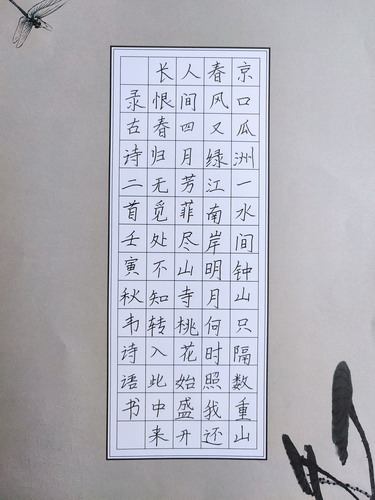 京口瓜洲一水间钟山只隔数重山
春风又绿江南岸明月何时照我还
人间四月芳菲尽山寺桃花始盛开
长恨春归无觅处不知转入此中来
录古诗二首壬寅秋韦诗语书